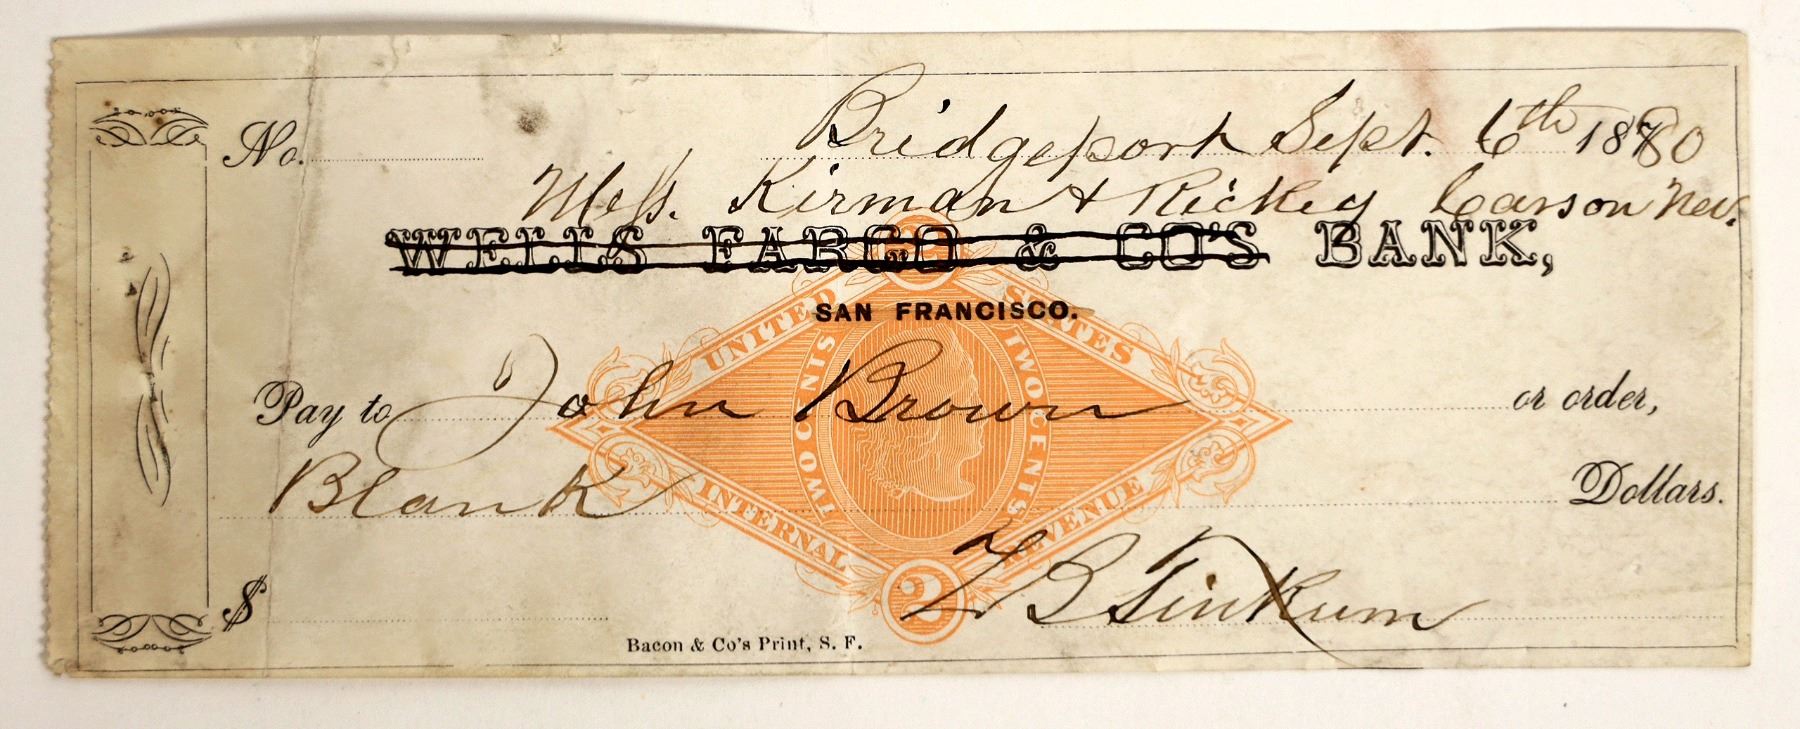 No. Bridgeport Sept. 6th 1880
Mess. Kirman & Rickey Carson Nev.
WELLS FARGO & CO'S BANK,
SAN FRANCISCO.
Pay to John Brown or order,
Blank Dollars.
$ Tinkum
Bacon & Co's Print, S. F.
2
UNITED STATES
TWO CENTS TWO CENTS
INTERNAL REVENUE
2